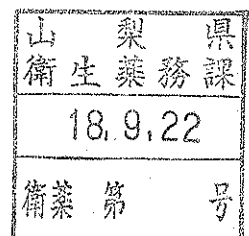 山梨県
衛生薬務課
18.9.22
衛薬第　号